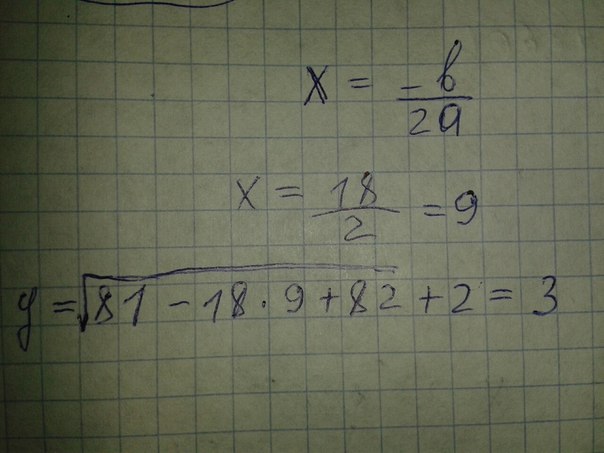 x = -b/2a
x = 18/2 = 9
y = √(81 - 18 · 9 + 82) + 2 = 3